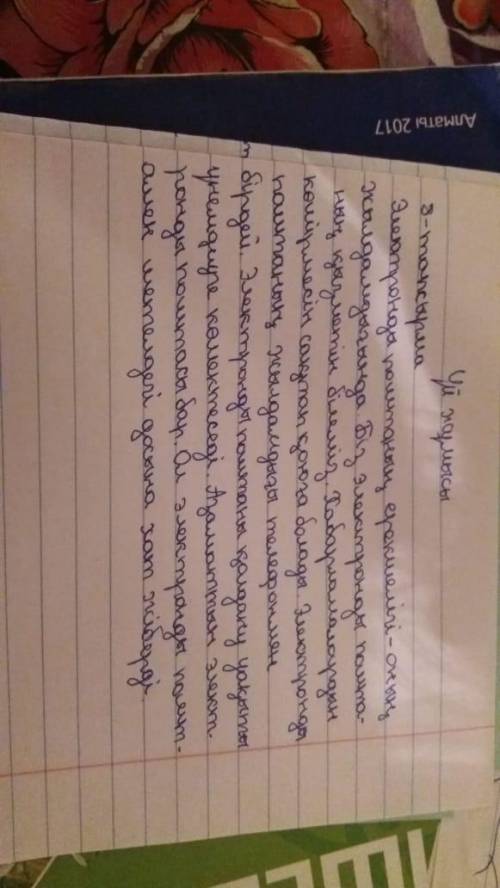 Алматы 2017
Үй жұмысы
3-тапсырма
Электронды поштаның ерекшелігі-оның
жылдамдығында. Біз электронды пошта-
ның қызметін білеміз. Хабарламалардын
көшірмесін сақтап қоюға болады. Электронды
поштаның жылдамдығы телефонмен
бірдей. Электронды поштаны қолдану уақытты
үнемдеуге көмектеседі. Азаматтын элект-
ронды поштасы бар. Ол электронды пошт-
амен шетелдегі досына хат жіберді.